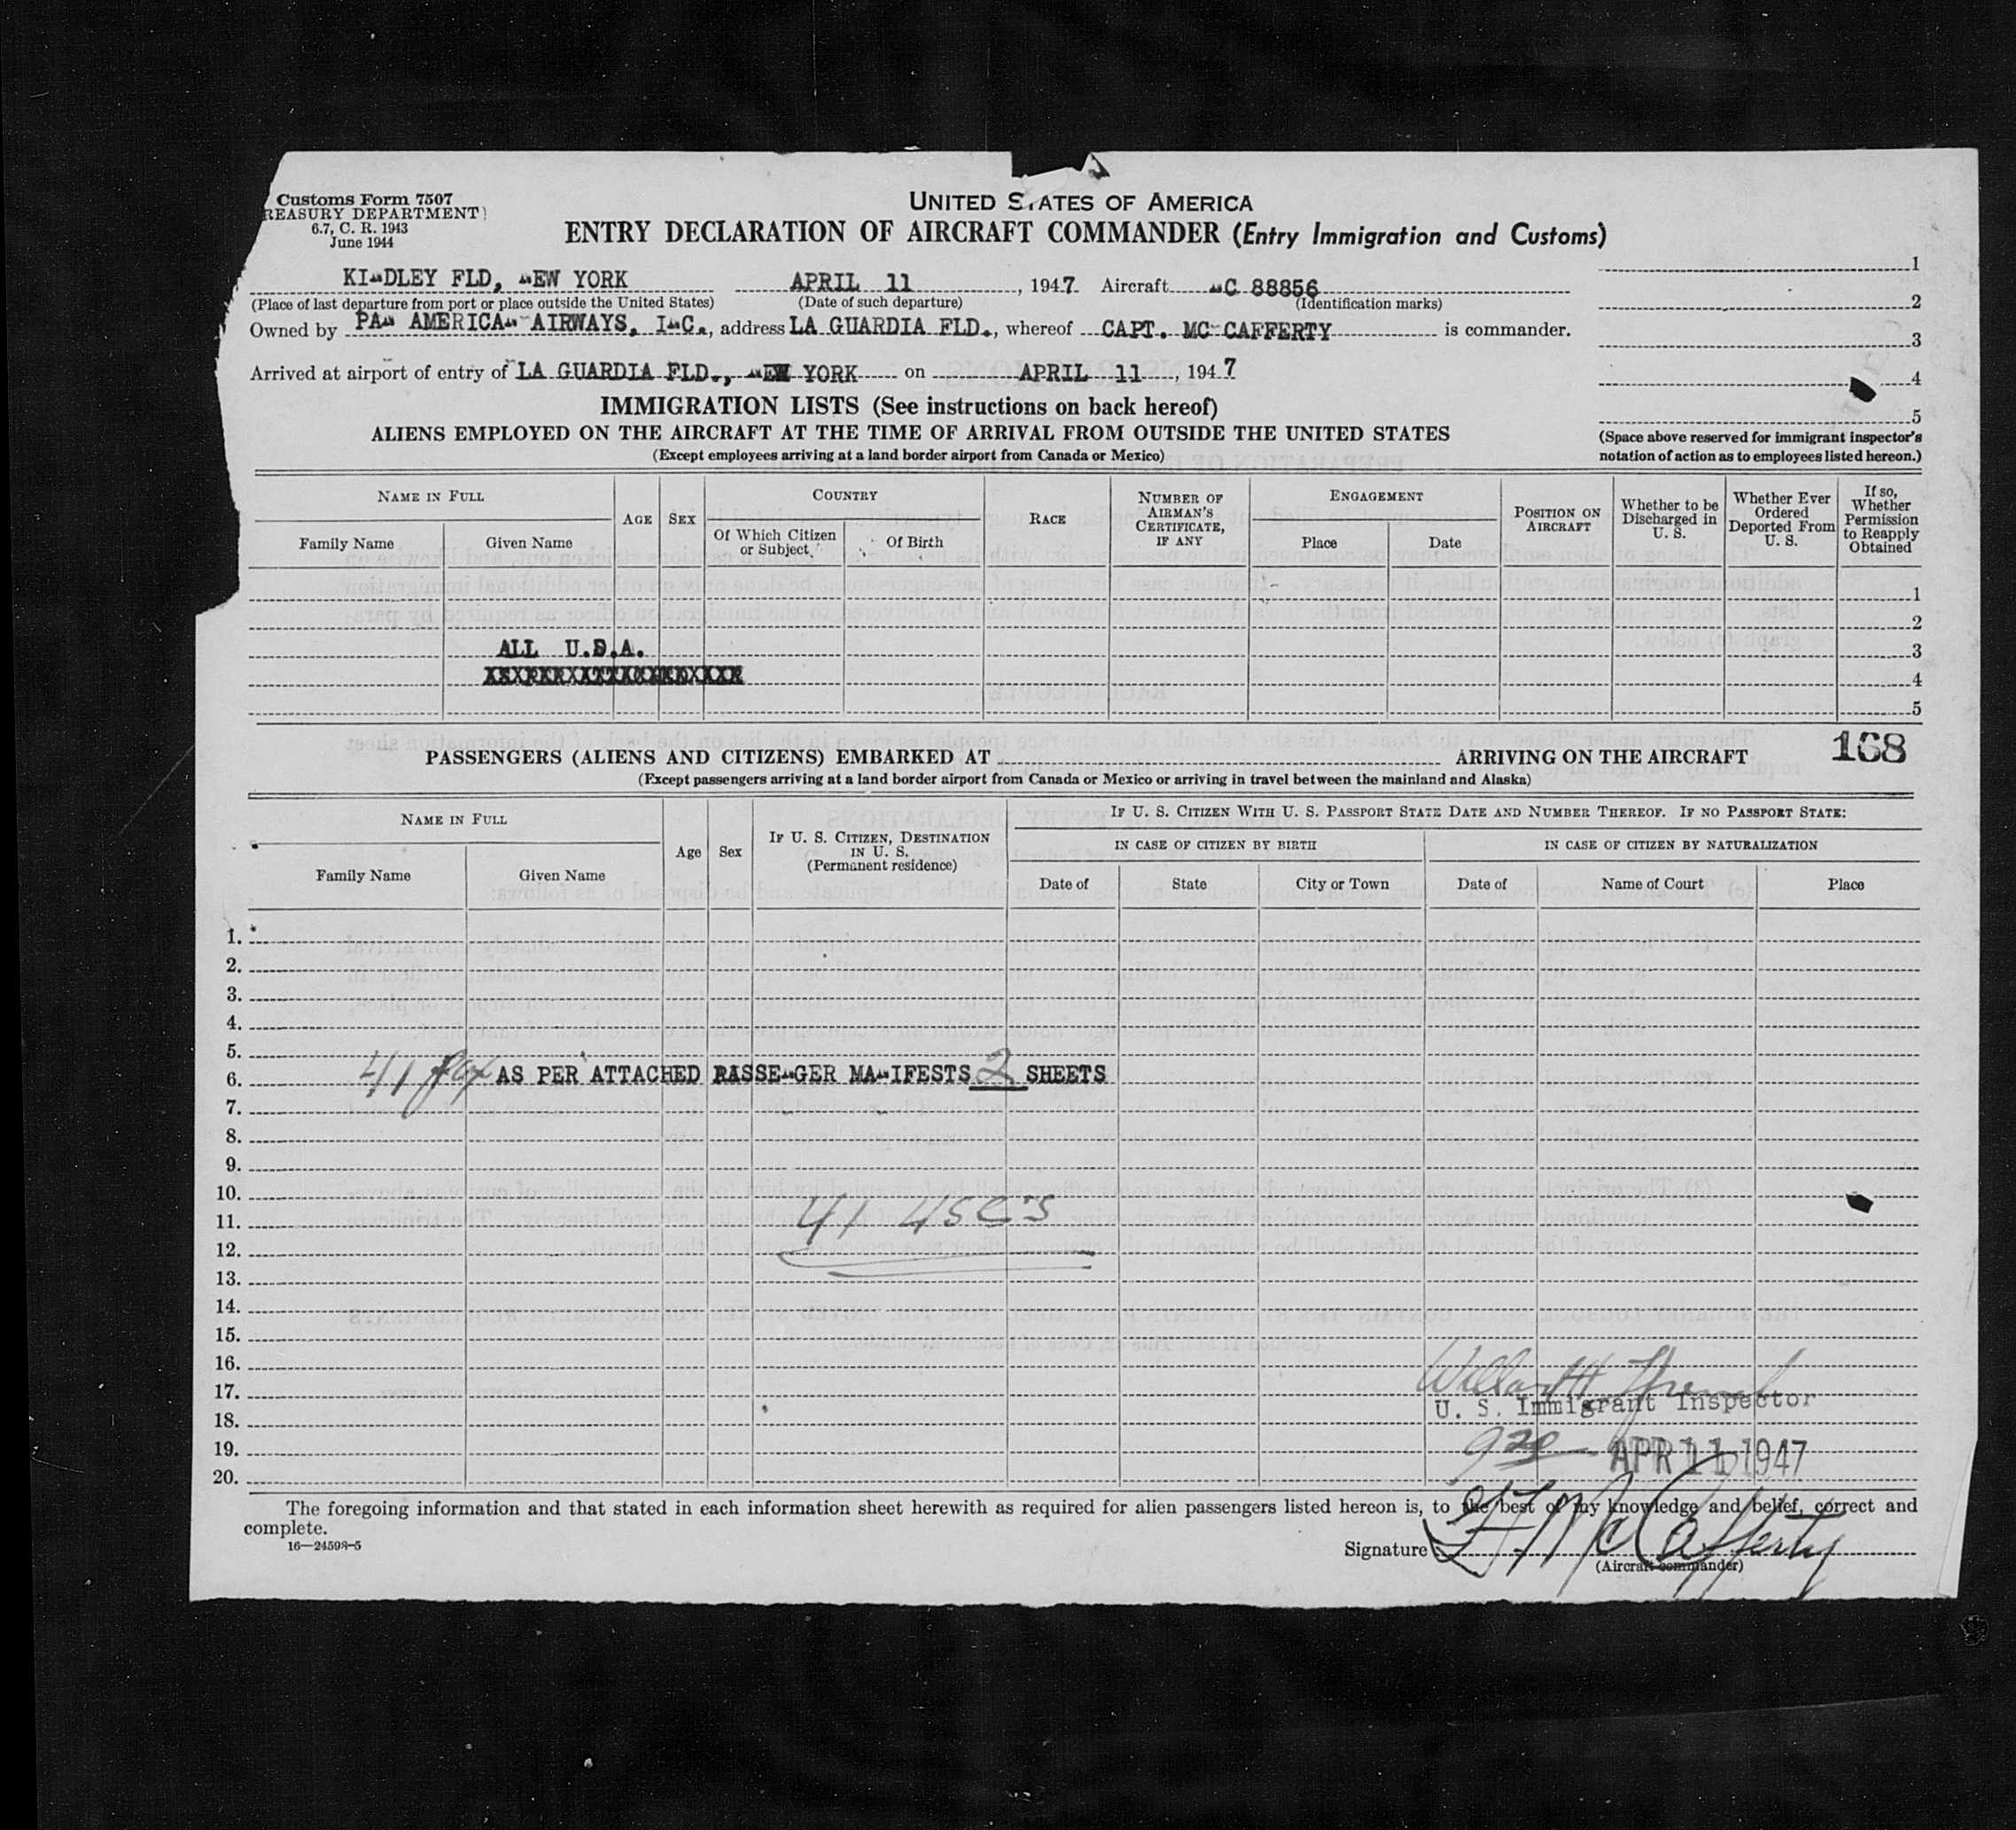 Customs Form 7507
REASURY DEPARTMENT)
6.7, C. R. 1943
June 1944
UNITED STATES OF AMERICA
ENTRY DECLARATION OF AIRCRAFT COMMANDER (Entry Immigration and Customs)
KINDLEY FLD, NEW YORK APRIL 11, 1947 Aircraft NC 88856
(Place of last departure from port or place outside the United States) (Date of such departure) (Identification marks)
Owned by PAN AMERICAN AIRWAYS, INC., address LA GUARDIA FLD., whereof CAPT. MC CAFFERTY is commander.
Arrived at airport of entry of LA GUARDIA FLD., NEW YORK on APRIL 11, 1947
1
2
3
4
5
(Space above reserved for immigrant inspector's
notation of action as to employees listed hereon.)
IMMIGRATION LISTS (See instructions on back hereof)
ALIENS EMPLOYED ON THE AIRCRAFT AT THE TIME OF ARRIVAL FROM OUTSIDE THE UNITED STATES
(Except employees arriving at a land border airport from Canada or Mexico)
NAME IN FULL
Family Name Given Name
AGE
SEX
COUNTRY
Of Which Citizen
or Subject
Of Birth
RACE
NUMBER OF
AIRMAN'S
CERTIFICATE,
IF ANY
ENGAGEMENT
Place Date
POSITION ON
AIRCRAFT
Whether to be
Discharged in
U. S.
Whether Ever
Ordered
Deported From
U. S.
If so,
Whether
Permission
to Reapply
Obtained
1
2
ALL U.S.A. 3
4
5
168
PASSENGERS (ALIENS AND CITIZENS) EMBARKED AT ARRIVING ON THE AIRCRAFT
(Except passengers arriving at a land border airport from Canada or Mexico or arriving in travel between the mainland and Alaska)
NAME IN FULL
Family Name Given Name
Age
Sex
IF U. S. CITIZEN, DESTINATION
IN U. S.
(Permanent residence)
IF U. S. CITIZEN WITH U. S. PASSPORT STATE DATE AND NUMBER THEREOF. IF NO PASSPORT STATE:
IN CASE OF CITIZEN BY BIRTH
Date of State City or Town
IN CASE OF CITIZEN BY NATURALIZATION
Date of Name of Court Place
1.
2.
3.
4.
5.
6. 41 pax AS PER ATTACHED PASSENGER MANIFESTS 2 SHEETS
7.
8.
9.
10.
11. 41 USC's
12.
13.
14.
15.
16.
17.
18. U. S. Immigrant Inspector
19. 920 APR 11 1947
20.
The foregoing information and that stated in each information sheet herewith as required for alien passengers listed hereon is, to the best of my knowledge and belief, correct and
complete.
16—24598-5
Signature F McCafferty
(Aircraft commander)